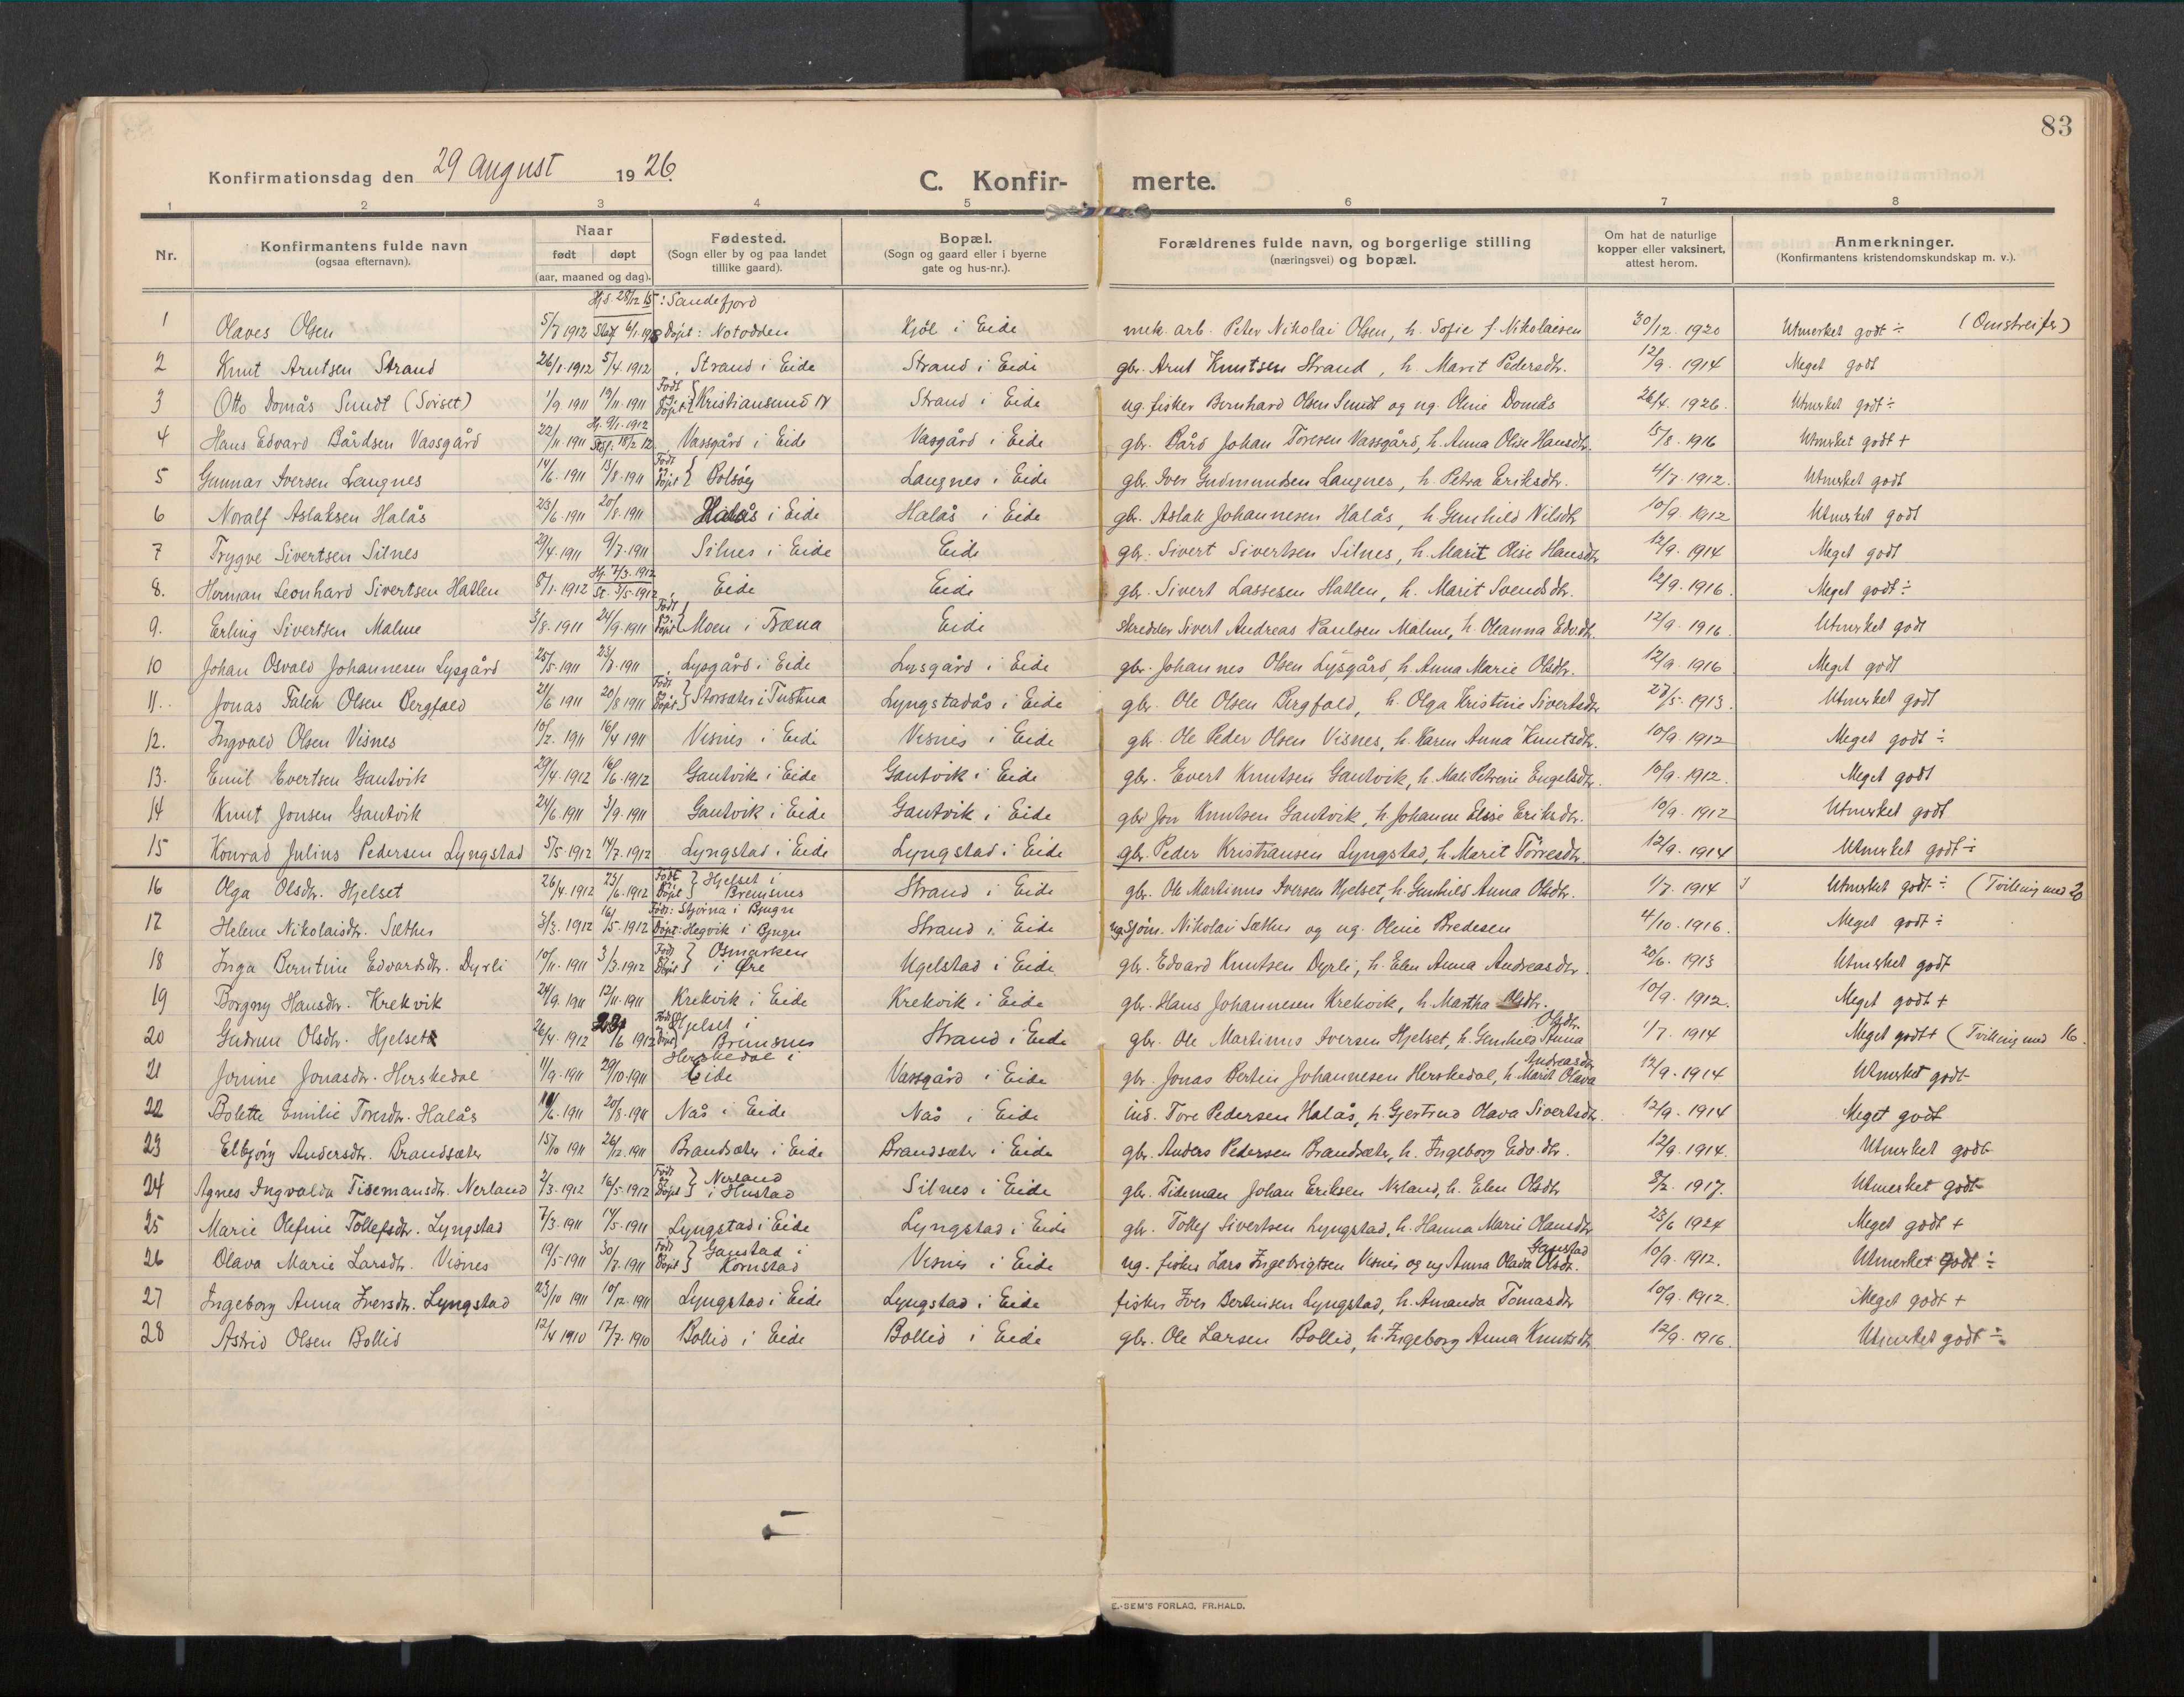 83
Konfirmationsdag den 29 august 1926.
C. Konfir- merte.
1 2 3 4 5 6 7 8
Nr.
Konfirmantens fulde navn
(ogsaa efternavn).
Naar
født døpt
(aar, maaned og dag).
Fødested.
(Sogn eller by og paa landet
tillike gaard).
Bopæl.
(Sogn og gaard eller i byerne
gate og hus-nr.).
Forældrenes fulde navn, og borgerlige stilling
(næringsvei) og bopæl.
Om hat de naturlige
kopper eller vaksinert,
attest herom.
Anmerkninger.
(Konfirmantens kristendomskundskap m. v.).
Hj.d. 28/12 15 : Sandefjord
1 Olaves Olsen 5/7 1912 Stadf. 6/1. 1918 Døpt: Notodden Kjøl i Eide mek. arb. Peter Nikolai Olsen, h. Sofie f. Nikolaisen 30/12. 1920 Utmerket godt ÷ (Omstreifer)
2 Knut Arntsen Strand 26/1. 1912 5/4. 1912 Strand i Eide Strand i Eide gbr. Arnt Knutsen Strand, h. Marit Pedersdtr. 12/9. 1914 Meget godt
3 Otto Domås Sundt (Sørset) 1/9 1911 19/11. 1911 Født og Døpt } Kristiansund N Strand i Eide ug. fisker Bernhard Olsen Sundt og ug. Oline Domås 26/4. 1926. Utmerket godt ÷
4 Hans Edvard Bårdsen Vassgård 22/11 1911 Hj. 9/1. 1912 Stdf. 18/2 12 Vassgård i Eide Vasgård i Eide gbr. Bård Johan Toresen Vassgård, h. Anna Olise Hansdtr. 15/8. 1916 Utmerket godt +
5 Gunnar Iversen Langnes 14/6. 1911 13/8. 1911 Født og Døpt } Bolsøy Langnes i Eide gbr. Iver Gudmundsen Langnes, h. Petra Eriksdtr. 4/7. 1912. Utmerket godt
6 Noralf Aslaksen Halås 23/6. 1911 20/8. 1911 Halås i Eide Halås i Eide gbr. Aslak Johannesen Halås, h. Gunhild Nilsdtr 10/9. 1912 Utmerket godt
7 Trygve Sivertsen Silnes 29/4. 1911 9/7. 1911 Silnes i Eide Eide gbr. Sivert Sivertsen Silnes, h. Marit Olise Hansdtr 12/9. 1914 Meget godt
8. Herman Leonhard Sivertsen Hatlen 8/1. 1912 Hj. 7/3. 1912 St. 3/5. 1912 Eide Eide gbr. Sivert Lassesen Hatlen, h. Marit Svendsdtr. 12/9. 1916. Meget godt ÷
9. Erling Sivertsen Malme 3/8. 1911 24/9. 1911 Født og Døpt } Moen i Fræna Eide skredder Sivert Andreas Paulsen Malme, h. Oleanna Edv.dtr. 12/9. 1916. Utmerket godt
10 Johan Osvald Johannesen Lysgård 25/5. 1911 23/7. 1911 Lysgård i Eide Lysgård i Eide gbr. Johannes Olsen Lysgård, h. Anna Marie Olsdtr. 12/9. 1916 Meget godt
11. Jonas Falch Olsen Bergfald 21/6 1911 20/8 1911 Født og Døpt } Storsæter i Tustna Lyngstadås i Eide gbr. Ole Olsen Bergfald, h. Olga Kristine Sivertsdtr 27/5. 1913. Utmerket godt
12. Ingvald Olsen Visnes 10/2. 1911 16/4 1911 Visnes i Eide Visnes i Eide gbr. Ole Peder Olsen Visnes, h. Karen Anna Knutsdtr. 10/9 1912 Meget godt ÷
13. Emil Evertsen Gautvik 29/4. 1912 16/6. 1912 Gautvik i Eide Gautvik i Eide gbr. Evert Knutsen Gautvik, h. Mali Petrine Engelsdtr. 10/9. 1912. Meget godt
14 Knut Jonsen Gautvik 24/6. 1911 3/9. 1911 Gautvik i Eide Gautvik i Eide gbr Jon Knutsen Gautvik, h. Johanne Elise Eriksdtr. 10/9. 1912 Utmerket godt
15 Konrad Julius Pedersen Lyngstad 5/5. 1912 14/7. 1912 Lyngstad i Eide Lyngstad i Eide gbr. Peder Kristiansen Lyngstad, h. Marit Torresdtr. 12/9. 1914 Utmerket godt ÷
16 Olga Olsdtr. Hjelset 26/4. 1912 23/6. 1912 Født og Døpt } Hjelset i Bremsnes Strand i Eide gbr. Ole Martinus Iversen Hjelset, h. Gunhild Anna Olsdtr. 1/7. 1914 Utmerket godt ÷ (Tvilling med 20
17 Helene Nikolaisdtr. Sæther 3/3. 1912 16/5. 1912 Født: Stjørna i Bjugn Døpt: Hegvik i Bjugn Strand i Eide ug. sjøm. Nikolai Sæther og ug. Oline Bredesen 4/10. 1916. Meget godt ÷
18 Inga Berntine Edvardsdtr. Dyrli 10/11. 1911 3/3. 1912 Født og Døpt } Osmarken i Øre Ugelstad i Eide gbr. Edvard Knutsen Dyrli, h. Elen Anna Andreasdtr. 20/6. 1913 Utmerket godt
19 Borgny Hansdtr. Krekvik 24/9. 1911 12/11. 1911 Krekvik i Eide Krekvik i Eide gbr. Hans Johannesen Krekvik, h. Martha Olsdtr. 10/9. 1912. Meget godt +
20 Gudrun Olsdtr. Hjelset 26/4. 1912 23/6 1912 Født og Døpt } Hjelset i Bremsnes Strand i Eide gbr. Ole Martinus Iversen Hjelset, h. Gunhild Anna Olsdtr. 1/7. 1914 Meget godt + (Tvilling med 16.
21 Jorine Jonasdtr. Herskedal 11/9. 1911 29/10. 1911 Herskedal i Eide Vassgård i Eide gbr. Jonas Bertin Johannesen Herskedal, h. Marit Olava Andreasdtr 12/9. 1914 Utmerket godt
22 Bolette Emilie Toresdtr. Halås 11/6. 1911 20/8. 1911 Nås i Eide Nås i Eide ind. Tore Pedersen Halås, h. Gjertrud Olava Sivertsdtr. 12/9. 1914 Meget godt
23 Elbjørg Andersdtr. Brandsæter 15/10 1911 26/12. 1911 Brandsæter i Eide Brandsæter i Eide gbr. Anders Pedersen Brandsæter, h. Ingeborg Edv.dtr. 12/9. 1914. Utmerket godt
24 Agnes Ingvalda Tidemansdtr. Nerland 2/3. 1912 16/5. 1912 Født og Døpt } Nerland i Hustad Silnes i Eide gbr. Tideman Johan Eriksen Nerland, h. Elen Olsdtr 8/2. 1917. Utmerket godt
25 Marie Olefine Tollefsdtr. Lyngstad 7/3. 1911 14/5. 1911 Lyngstad i Eide Lyngstad i Eide gbr. Tollef Sivertsen Lyngstad, h. Hanna Marie Olausdtr 23/6 1924 Meget godt +
26 Olava Marie Larsdtr. Visnes 19/5. 1911 30/7. 1911 Født og Døpt } Gaustad i Kornstad Visnes i Eide ug. fisker Lars Ingebrigtsen Visnes og ug Anna Olava Olsdtr. Gaustad 10/9. 1912. Utmerket godt ÷
27 Ingeborg Anna Iversdtr. Lyngstad 23/10 1911 10/12. 1911 Lyngstad i Eide Lyngstad i Eide fisker Iver Bertinsen Lyngstad, h. Amanda Tomasdtr 10/9. 1912. Meget godt +
28 Astrid Olsen Bollid 12/4 1910 17/7. 1910 Bollid i Eide Bollid i Eide gbr. Ole Larsen Bollid, h. Ingeborg Anna Knutsdtr. 12/9. 1916. Utmerket godt ÷
E. SEM'S FORLAG, FR.HALD.